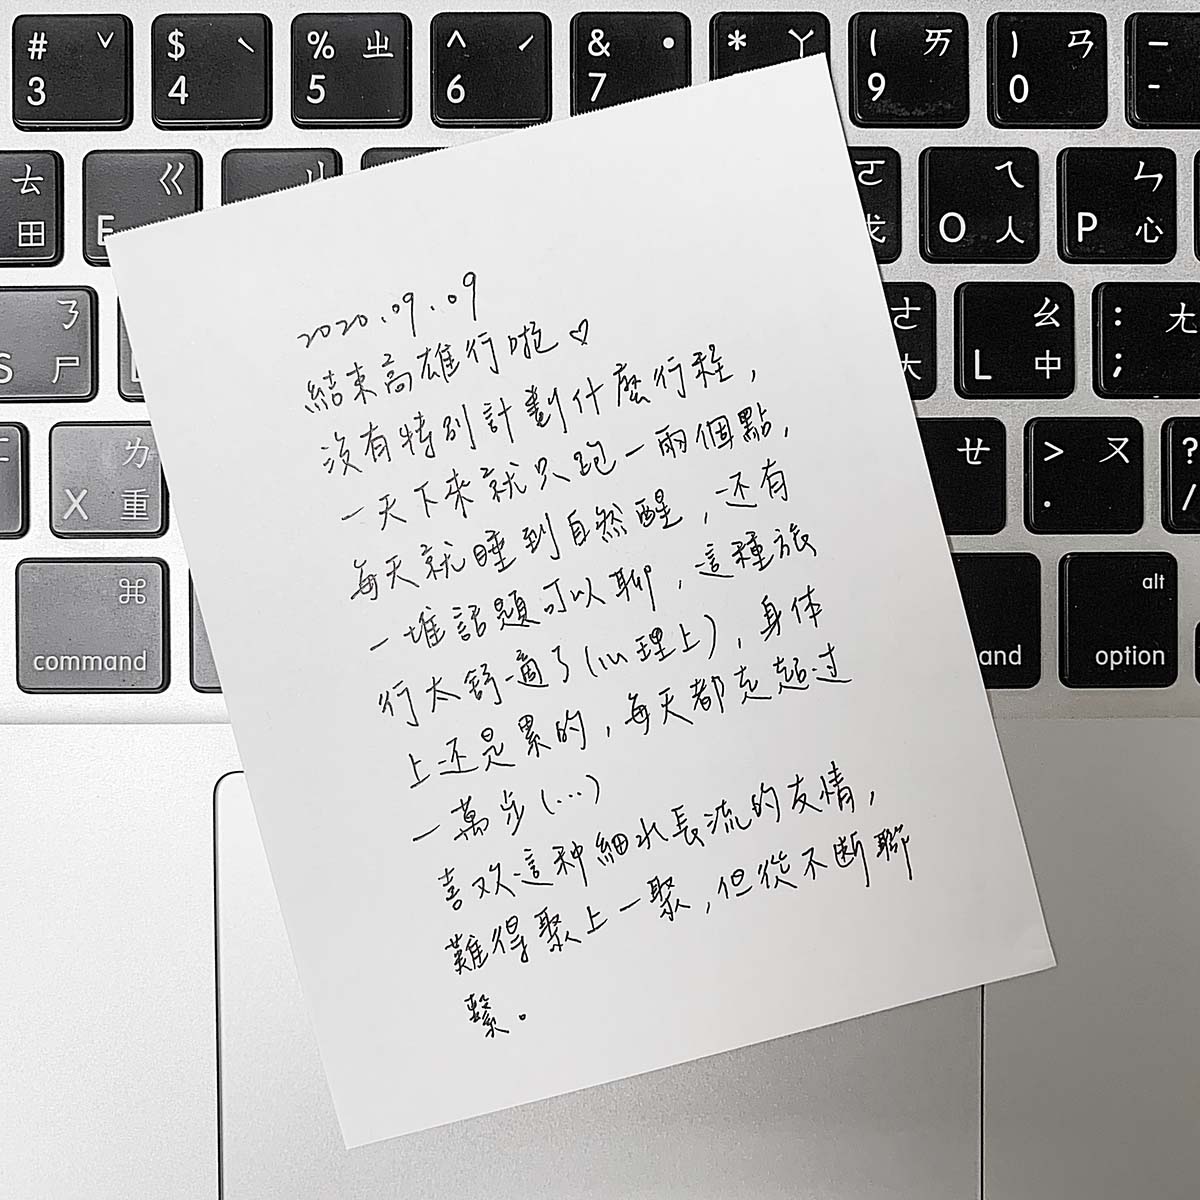 # ˇ 3
$ ˋ 4
% ㄓ 5
^ ˊ 6
& ˙ 7
* ㄚ
( ㄞ 9
) ㄢ 0
— -
ㄊ 田
ㄍ E
ㄟ O 人
ㄣ P 心
ㄋ S 尸
ㄠ L 中
: ㄤ ;
ㄌ X 重
ㄝ
> ㄡ .
? /
⌘ command
and
alt option
2020.09.09
結束高雄行啦♡
沒有特別計劃什麼行程，
一天下來就只跑一兩個點，
每天就睡到自然醒，还有
一堆話題可以聊，這種旅
行太舒適了(心理上)，身体
上还是累的，每天都走超过
一萬步(...)
喜欢這种細水長流的友情，
難得聚上一聚，但從不斷聯
繫。